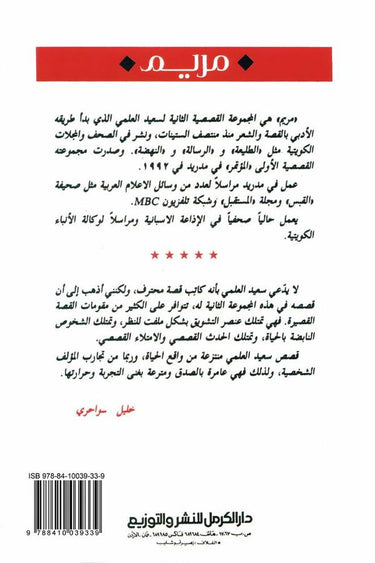 مريم
«مريم» هي المجموعة القصصية الثانية لسعيد العلمي الذي بدأ طريقه
الأدبي بالقصة والشعر منذ منتصف الستينات، ونشر في الصحف والمجلات
الكويتية مثل «الطليعة» و «الرسالة» و «النهضة». وصدرت مجموعته
القصصية الأولى «المؤتمر» في مدريد في ١٩٩٢.
عمل في مدريد مراسلاً لعدد من وسائل الاعلام العربية مثل صحيفة
«القبس» ومجلة «المستقبل» وشبكة تلفزيون MBC.
يعمل حالياً صحفياً في الإذاعة الاسبانية ومراسلاً لوكالة الأنباء
الكويتية.
لا يدّعي سعيد العلمي بأنه كاتب قصة محترف، ولكنني أذهب إلى أن
قصصه في هذه المجموعة الثانية له، تتوافر على الكثير من مقومات القصة
القصيرة. فهي تمتلك عنصر التشويق بشكل ملفت للنظر، وتمتلك الشخوص
النابضة بالحياة، وتمتلك الحدث القصصي والامتلاء القصصي.
قصص سعيد العلمي منتزعة من واقع الحياة، وربما من تجارب المؤلف
الشخصية، ولذلك فهي عامرة بالصدق ومترعة بغنى التجربة وحرارتها.
خليل سواحري
ISBN 978-84-10039-33-9
9 788410 039339
دار الكرمل للنشر والتوزيع